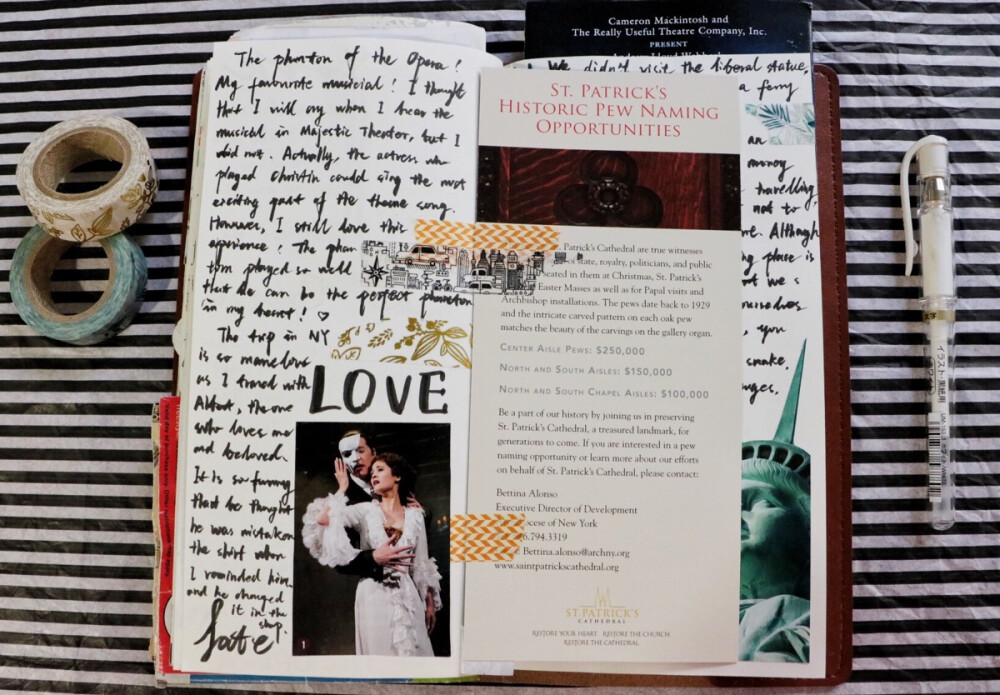 The phantom of the Opera!
My favourite musicial! I thought
that I will cry when I hear the
musical in Majestic Theater, but I
did not. Actually, the actress who
played christin could sing the most
exciting part of the theme song.
However, I still love this
experience! The phan
tom played so well
that he can be the perfect phantom
in my heart! ♡
The trip in NY
is so marvelous
as I traved with
Albert, the one
who loves me
and beloved.
It is so funny
that he thought
he was mistaken
the shirt when
I reminded him
and he changed
it in the
shop.
fate
LOVE
1
Cameron Mackintosh and
The Really Useful Theatre Company, Inc.
PRESENT
We didn't visit the liberal statue,
a ferry
an
money
travelling,
not to
me. Although
place is
we
ourselves
you
snake.
ST. PATRICK'S
HISTORIC PEW NAMING
OPPORTUNITIES
Patrick's Cathedral are true witnesses
state, royalty, politicians, and public
seated in them at Christmas, St. Patrick's
Easter Masses as well as for Papal visits and
Archbishop installations. The pews date back to 1929
and the intricate carved pattern on each oak pew
matches the beauty of the carvings on the gallery organ.
CENTER AISLE PEWS: $250,000
NORTH AND SOUTH AISLES: $150,000
NORTH AND SOUTH CHAPEL AISLES: $100,000
Be a part of our history by joining us in preserving
St. Patrick's Cathedral, a treasured landmark, for
generations to come. If you are interested in a pew
naming opportunity or learn more about our efforts
on behalf of St. Patrick's Cathedral, please contact:
Bettina Alonso
Executive Director of Development
ocese of New York
6.794.3319
Bettina.alonso@archny.org
www.saintpatrickscathedral.org
ST. PATRICK'S
CATHEDRAL
RESTORE YOUR HEART RESTORE THE CHURCH
RESTORE THE CATHEDRAL